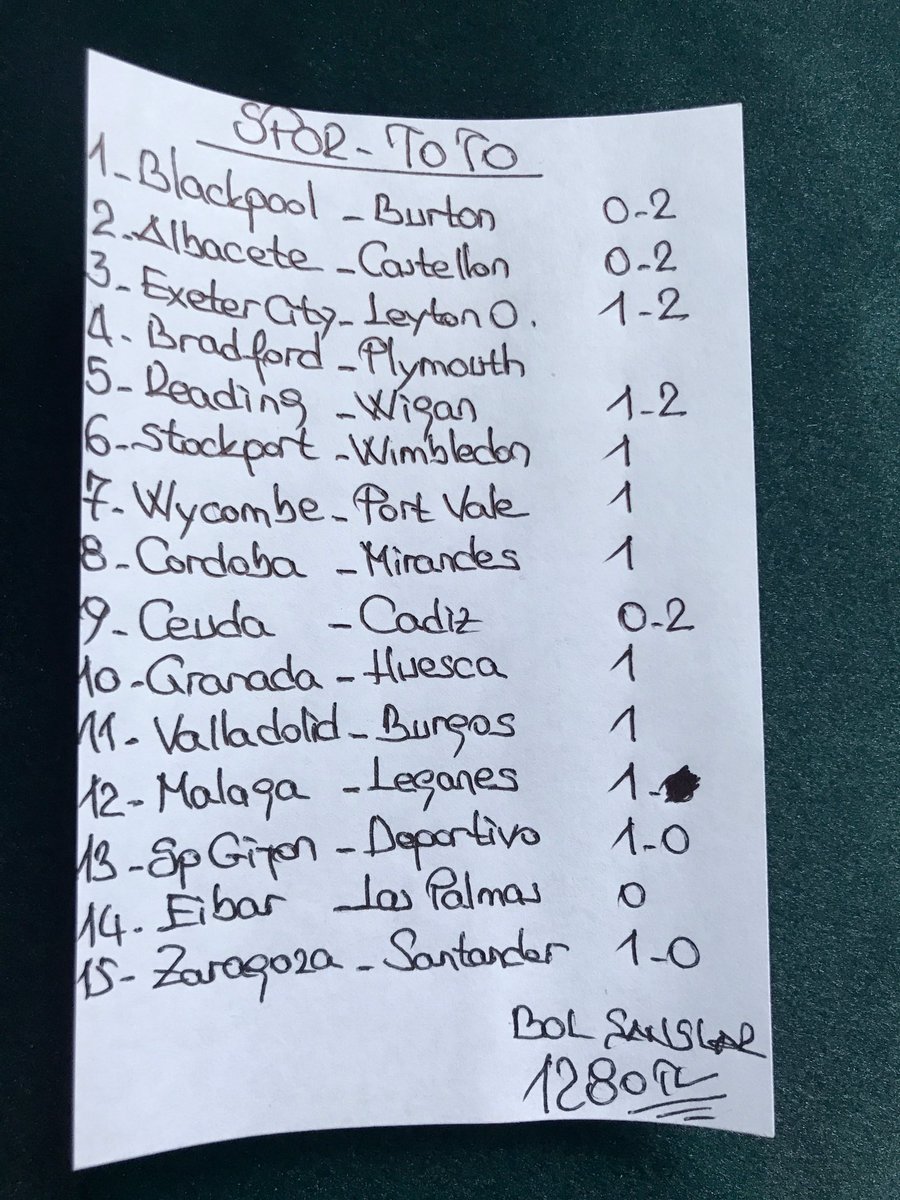 SPOR-TOTO
1-Blackpool - Burton 0-2
2-Albacete - Castellon 0-2
3-Exeter City - Leyton O. 1-2
4-Bradford - Plymouth
5-Reading - Wigan 1-2
6-Stockport - Wimbledon 1
7-Wycombe - Port Vale 1
8-Cordoba - Mirandes 1
9-Ceuda - Cadiz 0-2
10-Granada - Huesca 1
11-Valladolid - Burgos 1
12-Malaga - Leganes 1-
13-Sp Gijon - Deportivo 1-0
14-Eibar - Las Palmas 0
15-Zaragoza - Santander 1-0
BOL ŞANSLAR
1280 TL